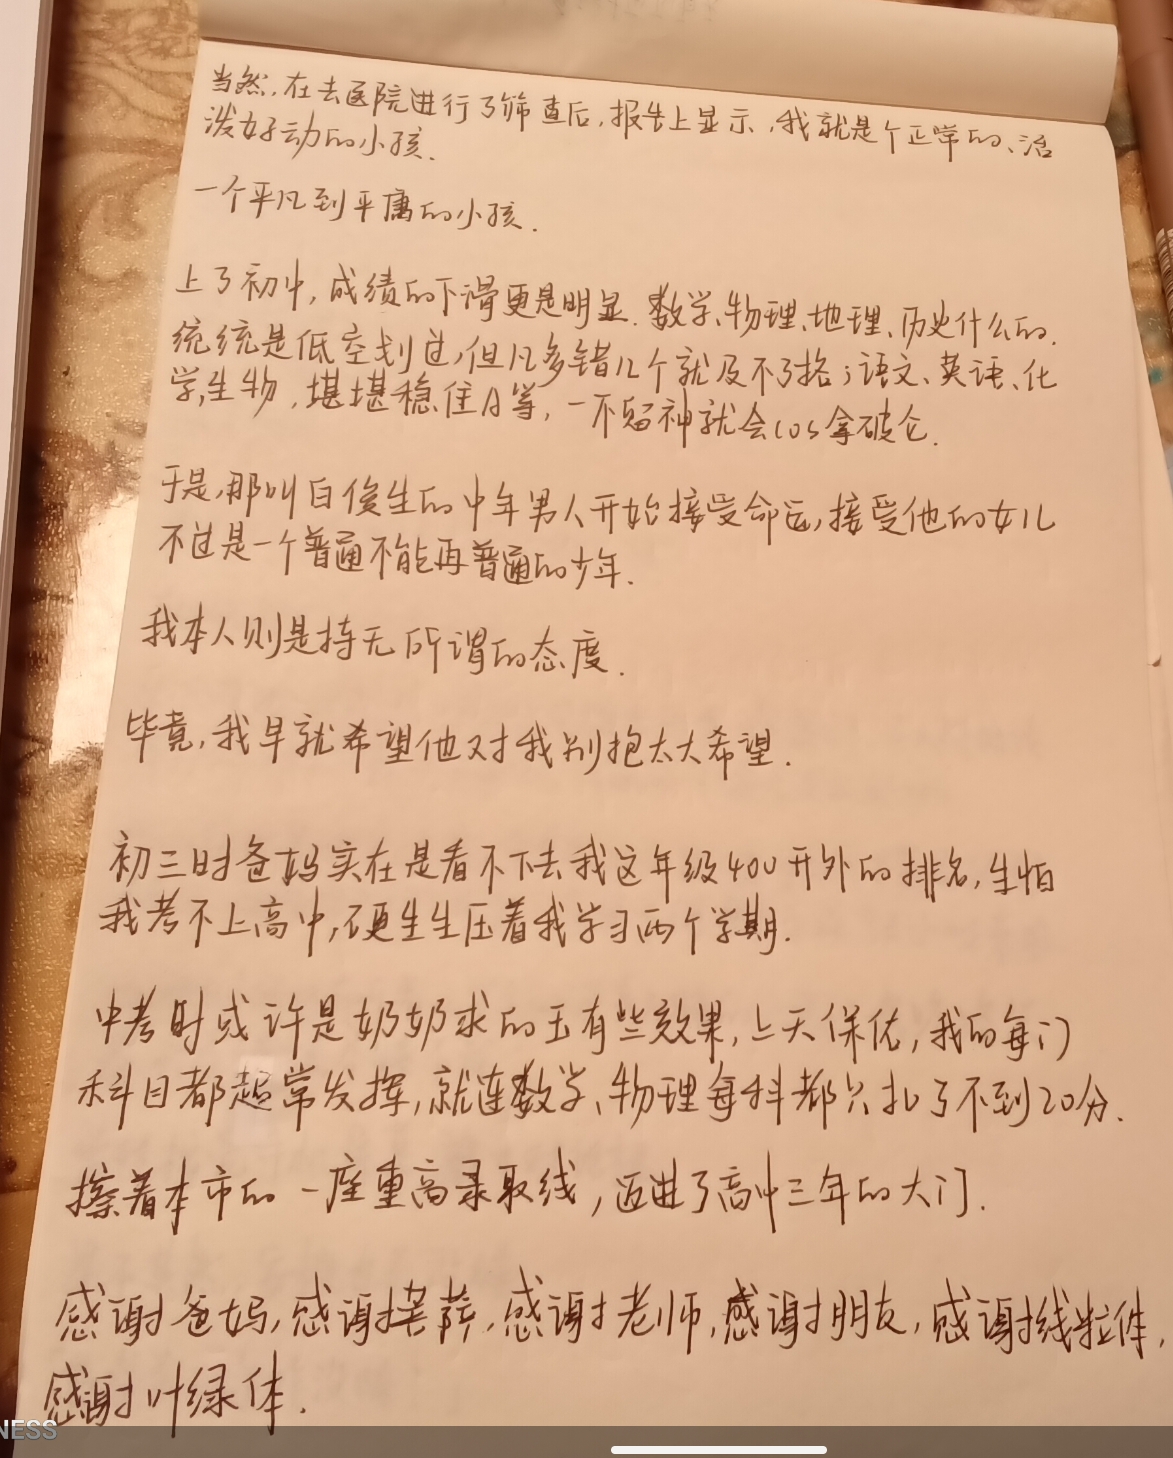 当然,在去医院进行了筛查后,报告上显示,我就是个正常的、活
泼好动的小孩.
一个平凡到平庸的小孩.
上了初中,成绩的下滑更是明显.数学、物理、地理、历史什么的.
统统是低空划过,但凡多错几个就及不了格;语文、英语、化
学,生物,堪堪稳住A等,一不留神就会cos拿破仑.
于是,那叫白俊生的中年男人开始接受命运,接受他的女儿
不过是一个普通不能再普通的少年.
我本人则是持无所谓的态度.
毕竟,我早就希望他对我别抱太大希望.
初三时爸妈实在是看不下去我这年级400开外的排名,生怕
我考不上高中,硬生生压着我学习两个学期.
中考时或许是奶奶求的玉有些效果,上天保佑,我的每门
科目都超常发挥,就连数学、物理每科都只扣了不到20分.
擦着本市的一座重高录取线,迈进了高中三年的大门.
感谢爸妈,感谢菩萨,感谢老师,感谢朋友,感谢线粒体,
感谢叶绿体.
NESS